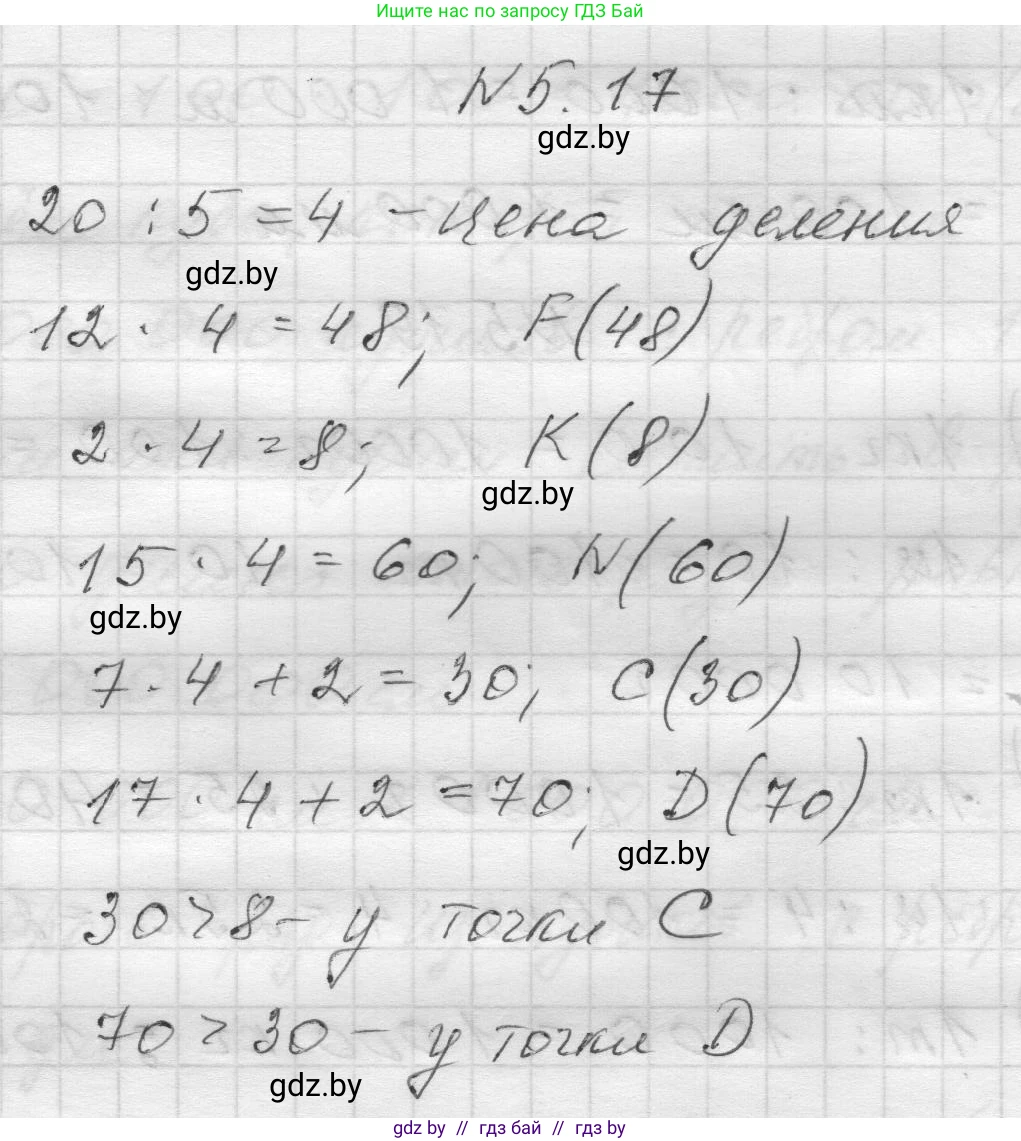 Ищите нас по запросу ГДЗ Бай
N 5.17
gdz.by
20 : 5 = 4 - цена деления
gdz.by
12 · 4 = 48; F(48)
2 · 4 = 8; K(8)
gdz.by
15 · 4 = 60; N(60)
gdz.by
7 · 4 + 2 = 30; C(30)
17 · 4 + 2 = 70; D(70)
gdz.by
30 > 8 - у точки C
70 > 30 - у точки D
gdz.by
gdz by // гдз бай // гдз by